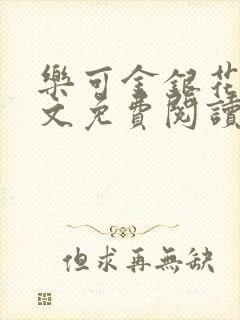 樂可金銀花
文免費閱讀
但求再無缺